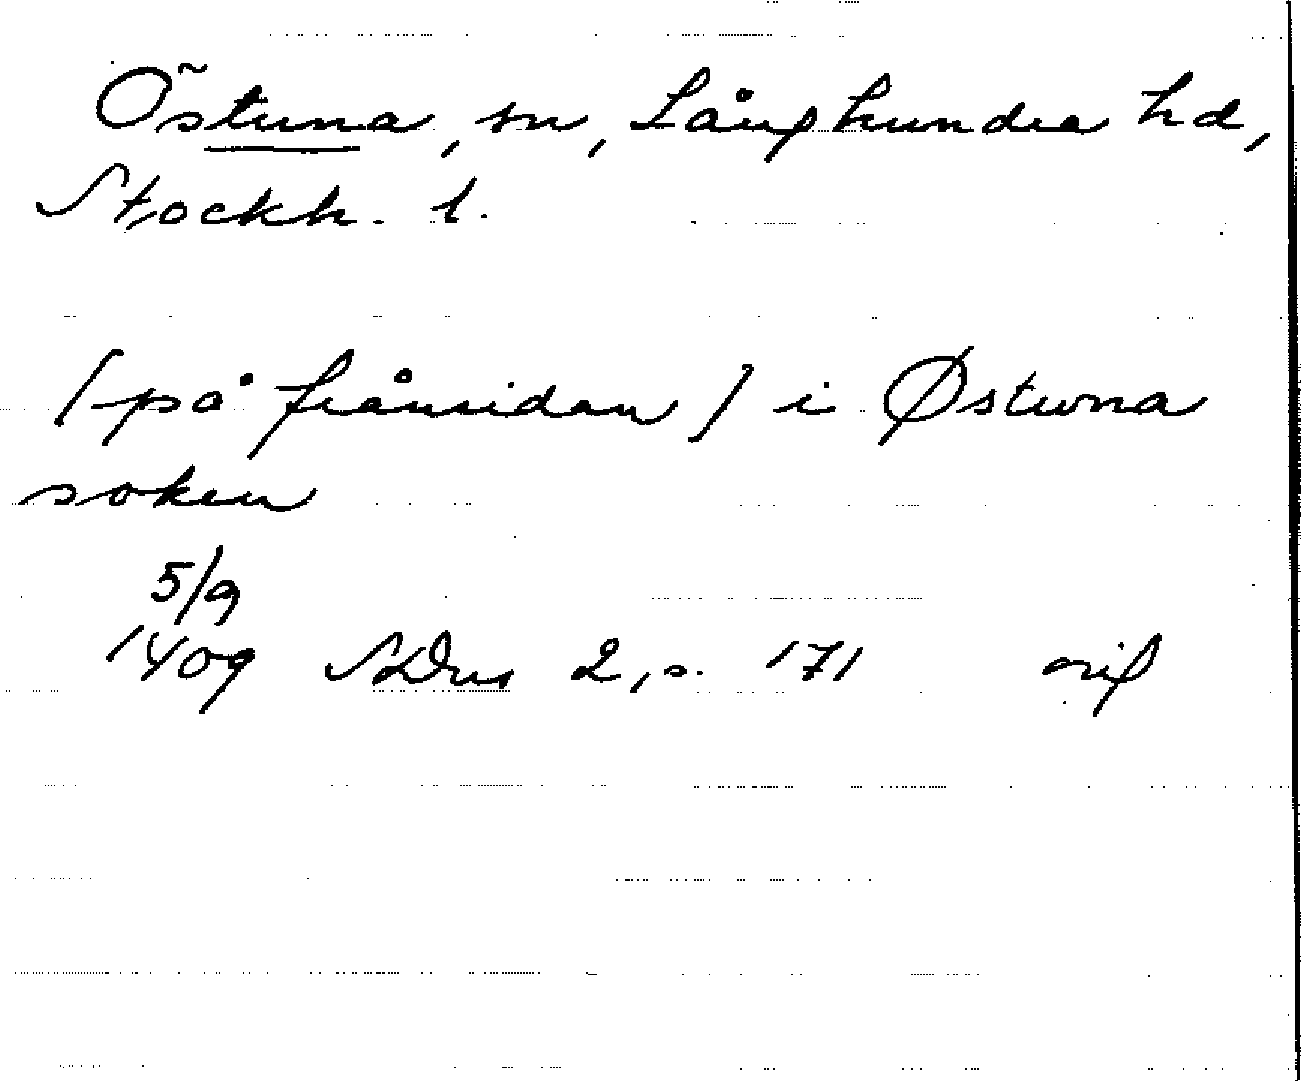 Östuna, sn, Långhundra hd,
Stockh. l.
[på frånsidan] i Østuna
soken
5/9
1409 SDns 2, s. 171 orig